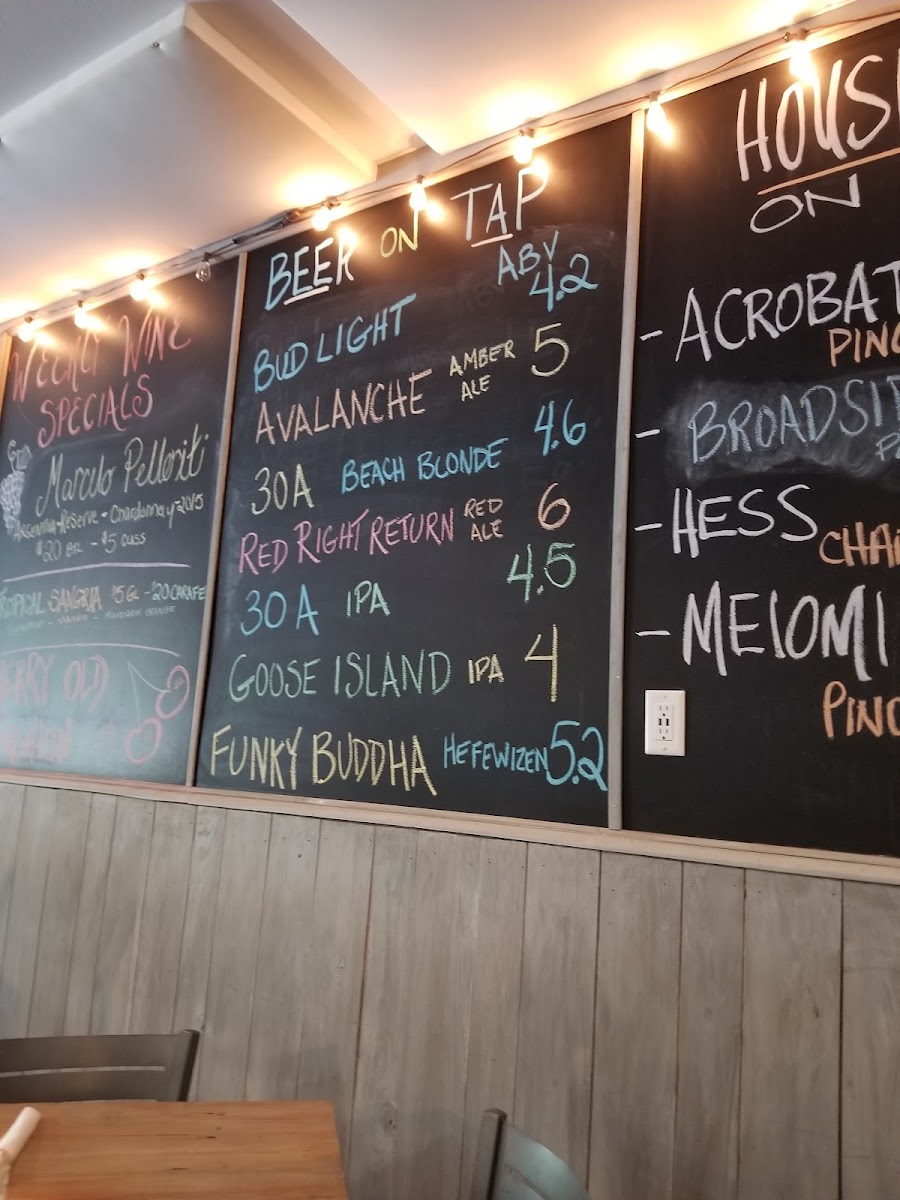 WEEKLY WINE
SPECIALS
Reserve - Chardonnay - 2015
$20 BTL - $5 GLASS
TROPICAL SANGRIA $5 GL - $20 CARAFE
OLD
BEER ON TAP
ABV
BUD LIGHT 4.2
AVALANCHE AMBER ALE 5
30A BEACH BLONDE 4.6
RED RIGHT RETURN RED ALE 6
30A IPA 4.5
GOOSE ISLAND IPA 4
FUNKY BUDDHA HEFEWIZEN 5.2
HOUS
ON
- ACROBAT
PINO
- BROADSI
- HESS
CHA
- MEIOMI
PINO